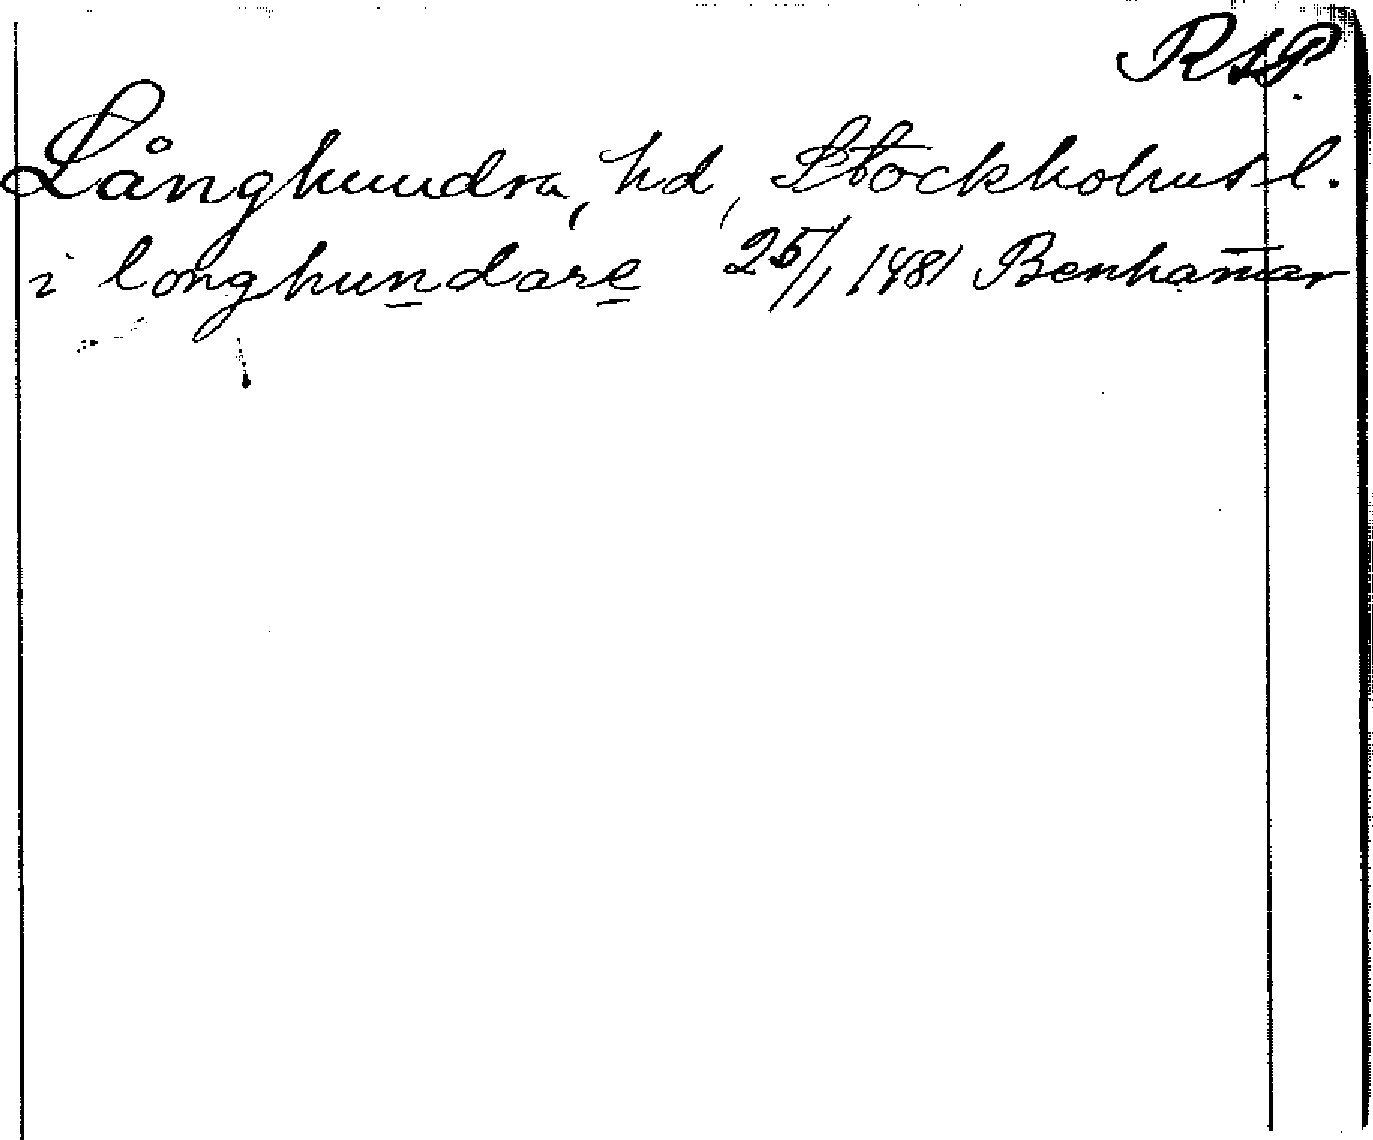 RAP.
Långhundra, hd, Stockholms l.
i longhundare 25/1 1481 Benham̄ar